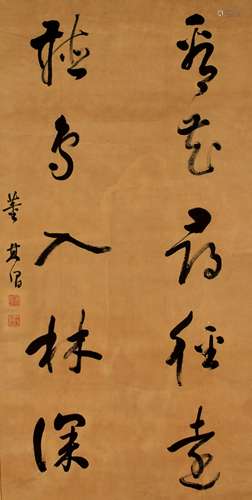 看花尋徑遠
聽鳥入林深
董其昌